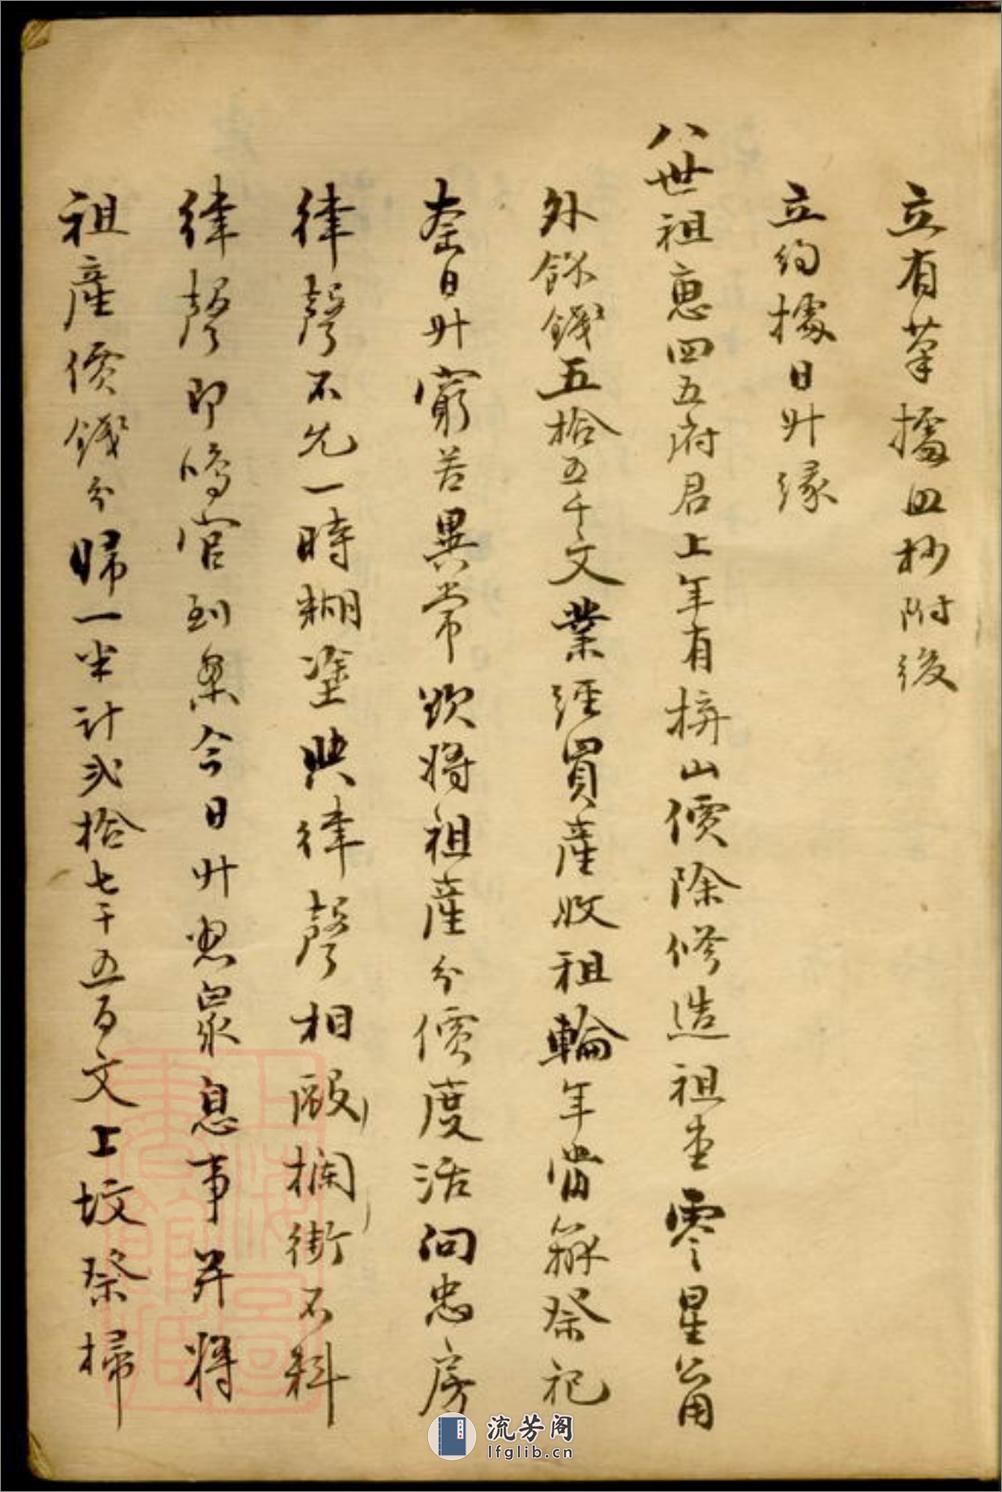 立有筆據照抄附後
立約據日升緣
八世祖惠四五府君上年有拚山價除修造祖堂零星公用
外餘錢五拾五千文業經買產收租輪年當辦祭祀
奈日升窮苦異常欲將祖產分價度活向忠房
律聲不允一時糊塗與律聲相毆攔街不料
律聲即鳴官到案今日升思眾息事并將
祖產價錢分歸一半計弍拾七千五百文上墳祭掃
流芳阁
lfglib.cn